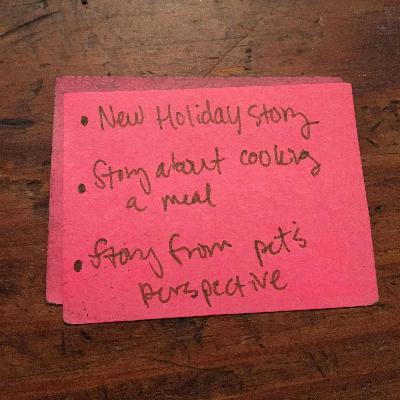 • New Holiday Story
• Story about cooking
a meal
• Story from pet's
perspective